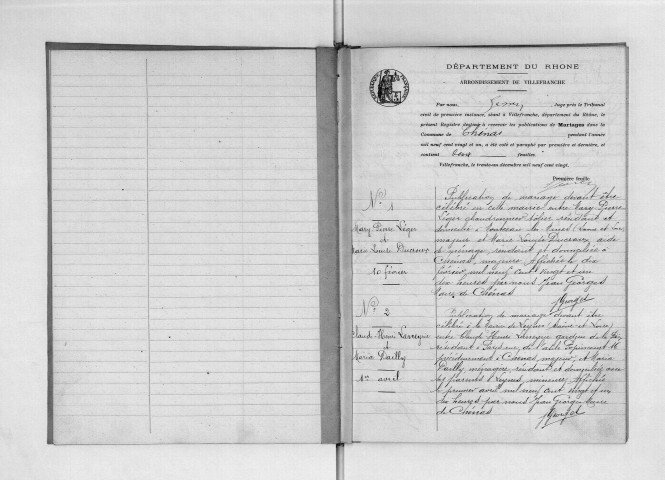 DÉPARTEMENT DU RHONE
ARRONDISSEMENT DE VILLEFRANCHE
Par nous, Juge près le Tribunal
civil de première instance, séant à Villefranche, département du Rhône, le
présent Registre destiné à recevoir les publications de Mariages dans la
Commune de Chénas pendant l'année
mil neuf cent vingt et un, a été coté et paraphé par première et dernière, et
contient deux feuilles.
Villefranche, le trente décembre mil neuf cent vingt.
Première feuille
N° 1
Mary Pierre Léger
et
Marie Louise Ducroux
10 février
Publication de mariage devant être
célébré en cette mairie entre Mary Pierre
Léger résidant et
domicilié à Montceau les Mines (Saône et Loire)
majeur et Marie Louise Ducroux aide
de ménage, résidant et domiciliée à
Chénas, majeure Affichée le dix
février mil neuf cent vingt et un
dix heures par nous Jean Georges
Maire de Chénas
N° 2
Claude Henri
et
Maria Dailly
1er avril
Publication de mariage devant être
célébré à la Mairie de (Saône et Loire)
entre Claude Henri
résidant à
précédemment à Chénas, majeur, et Maria
Dailly, ménagère résidant et domiciliée avec
mineure, Affichée
le premier avril mil neuf cent vingt et un
dix heures par nous Jean Georges Maire
de Chénas